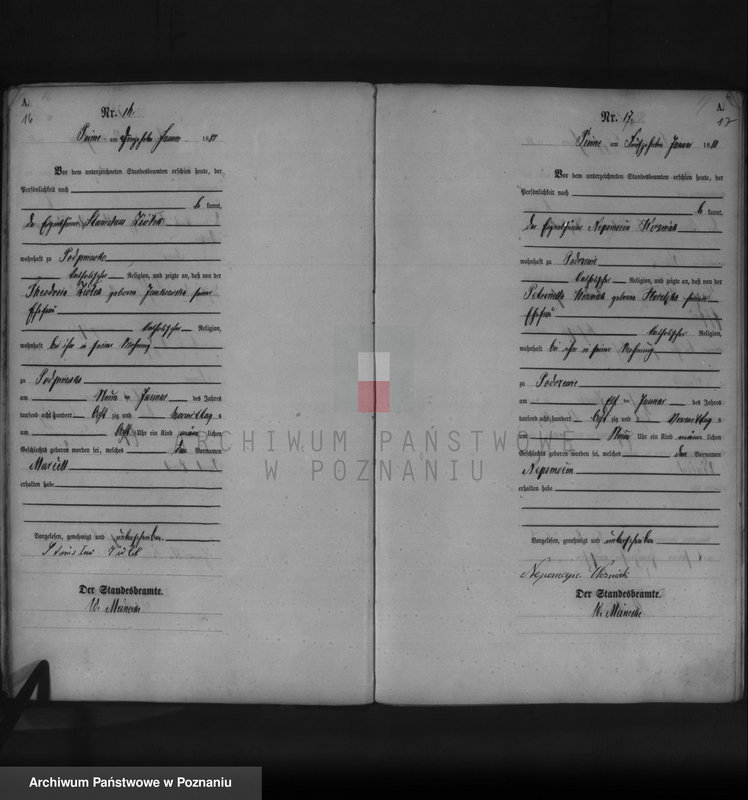 A.
16
Nr. 16.
Pinne am Januar 188
Vor dem unterzeichneten Standesbeamten erschien heute, der
Persönlichkeit nach
be kannt,
der Eigenthümer Stanislaus
wohnhaft zu Podpniewko
katholischer Religion, und zeigte an, daß von der
Theodosia geborene seiner
Ehefrau
katholischer Religion,
wohnhaft bei ihm in seiner Wohnung
zu Podpniewko
am Neun ten Januar des Jahres
tausend acht hundert Acht zig und Vormittag s
um Acht Uhr ein Kind männ lichen
Geschlechts geboren worden sei, welches den Vornamen
Marcell
erhalten habe
Vorgelesen, genehmigt und unterschrieben
Der Standesbeamte.
A.
17
Nr. 17.
Pinne am Fünfzehnten Januar 188
Vor dem unterzeichneten Standesbeamten erschien heute, der
Persönlichkeit nach
be kannt,
der Eigenthümer Nepomucen Wozniak
wohnhaft zu Podrzewie
katholischer Religion, und zeigte an, daß von der
Petronella Wozniak geborene seiner
Ehefrau
katholischer Religion,
wohnhaft bei ihm in seiner Wohnung
zu Podrzewie
am Elf ten Januar des Jahres
tausend acht hundert Acht zig und Vormittag s
um Neun Uhr ein Kind männ lichen
Geschlechts geboren worden sei, welches den Vornamen
Nepomucen
erhalten habe
Vorgelesen, genehmigt und unterschrieben
Der Standesbeamte.
ARCHIWUM PAŃSTWOWE
W POZNANIU
Archiwum Państwowe w Poznaniu